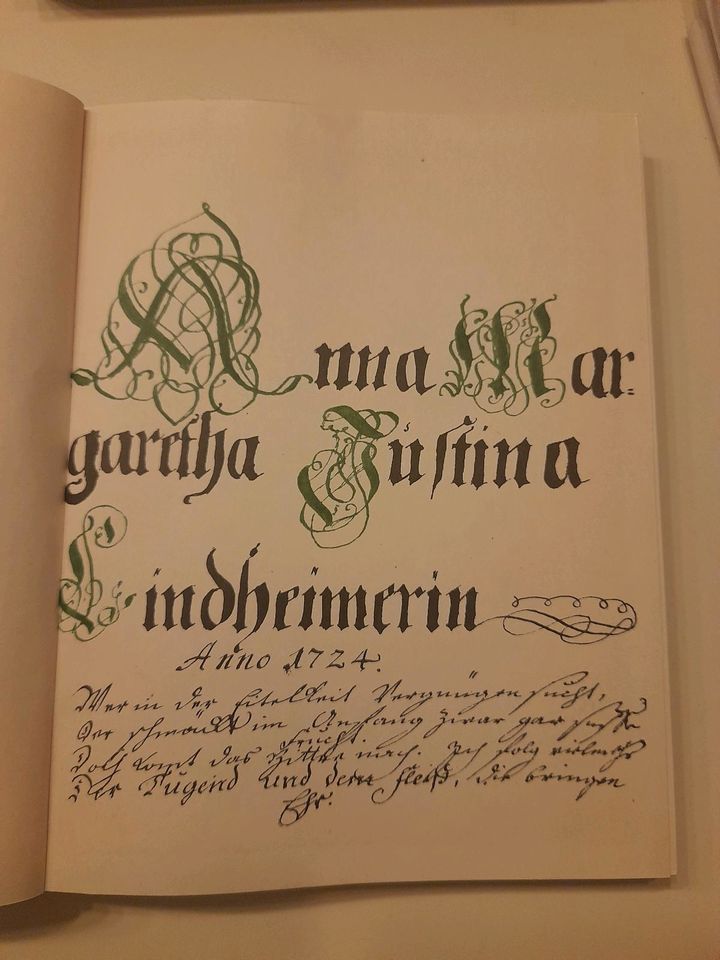 Anna Mar:
garetha Justina
Lindheimerin
Anno 1724.
Wer in der Eitelkeit Vergnügen sucht,
Der schmäckt im Anfang zwar gar süsse
Frucht.
Doch komt das Bitter nach. Ich folg vielmehr
Der Tugend und dem Fleiß, die bringen
Ehr.